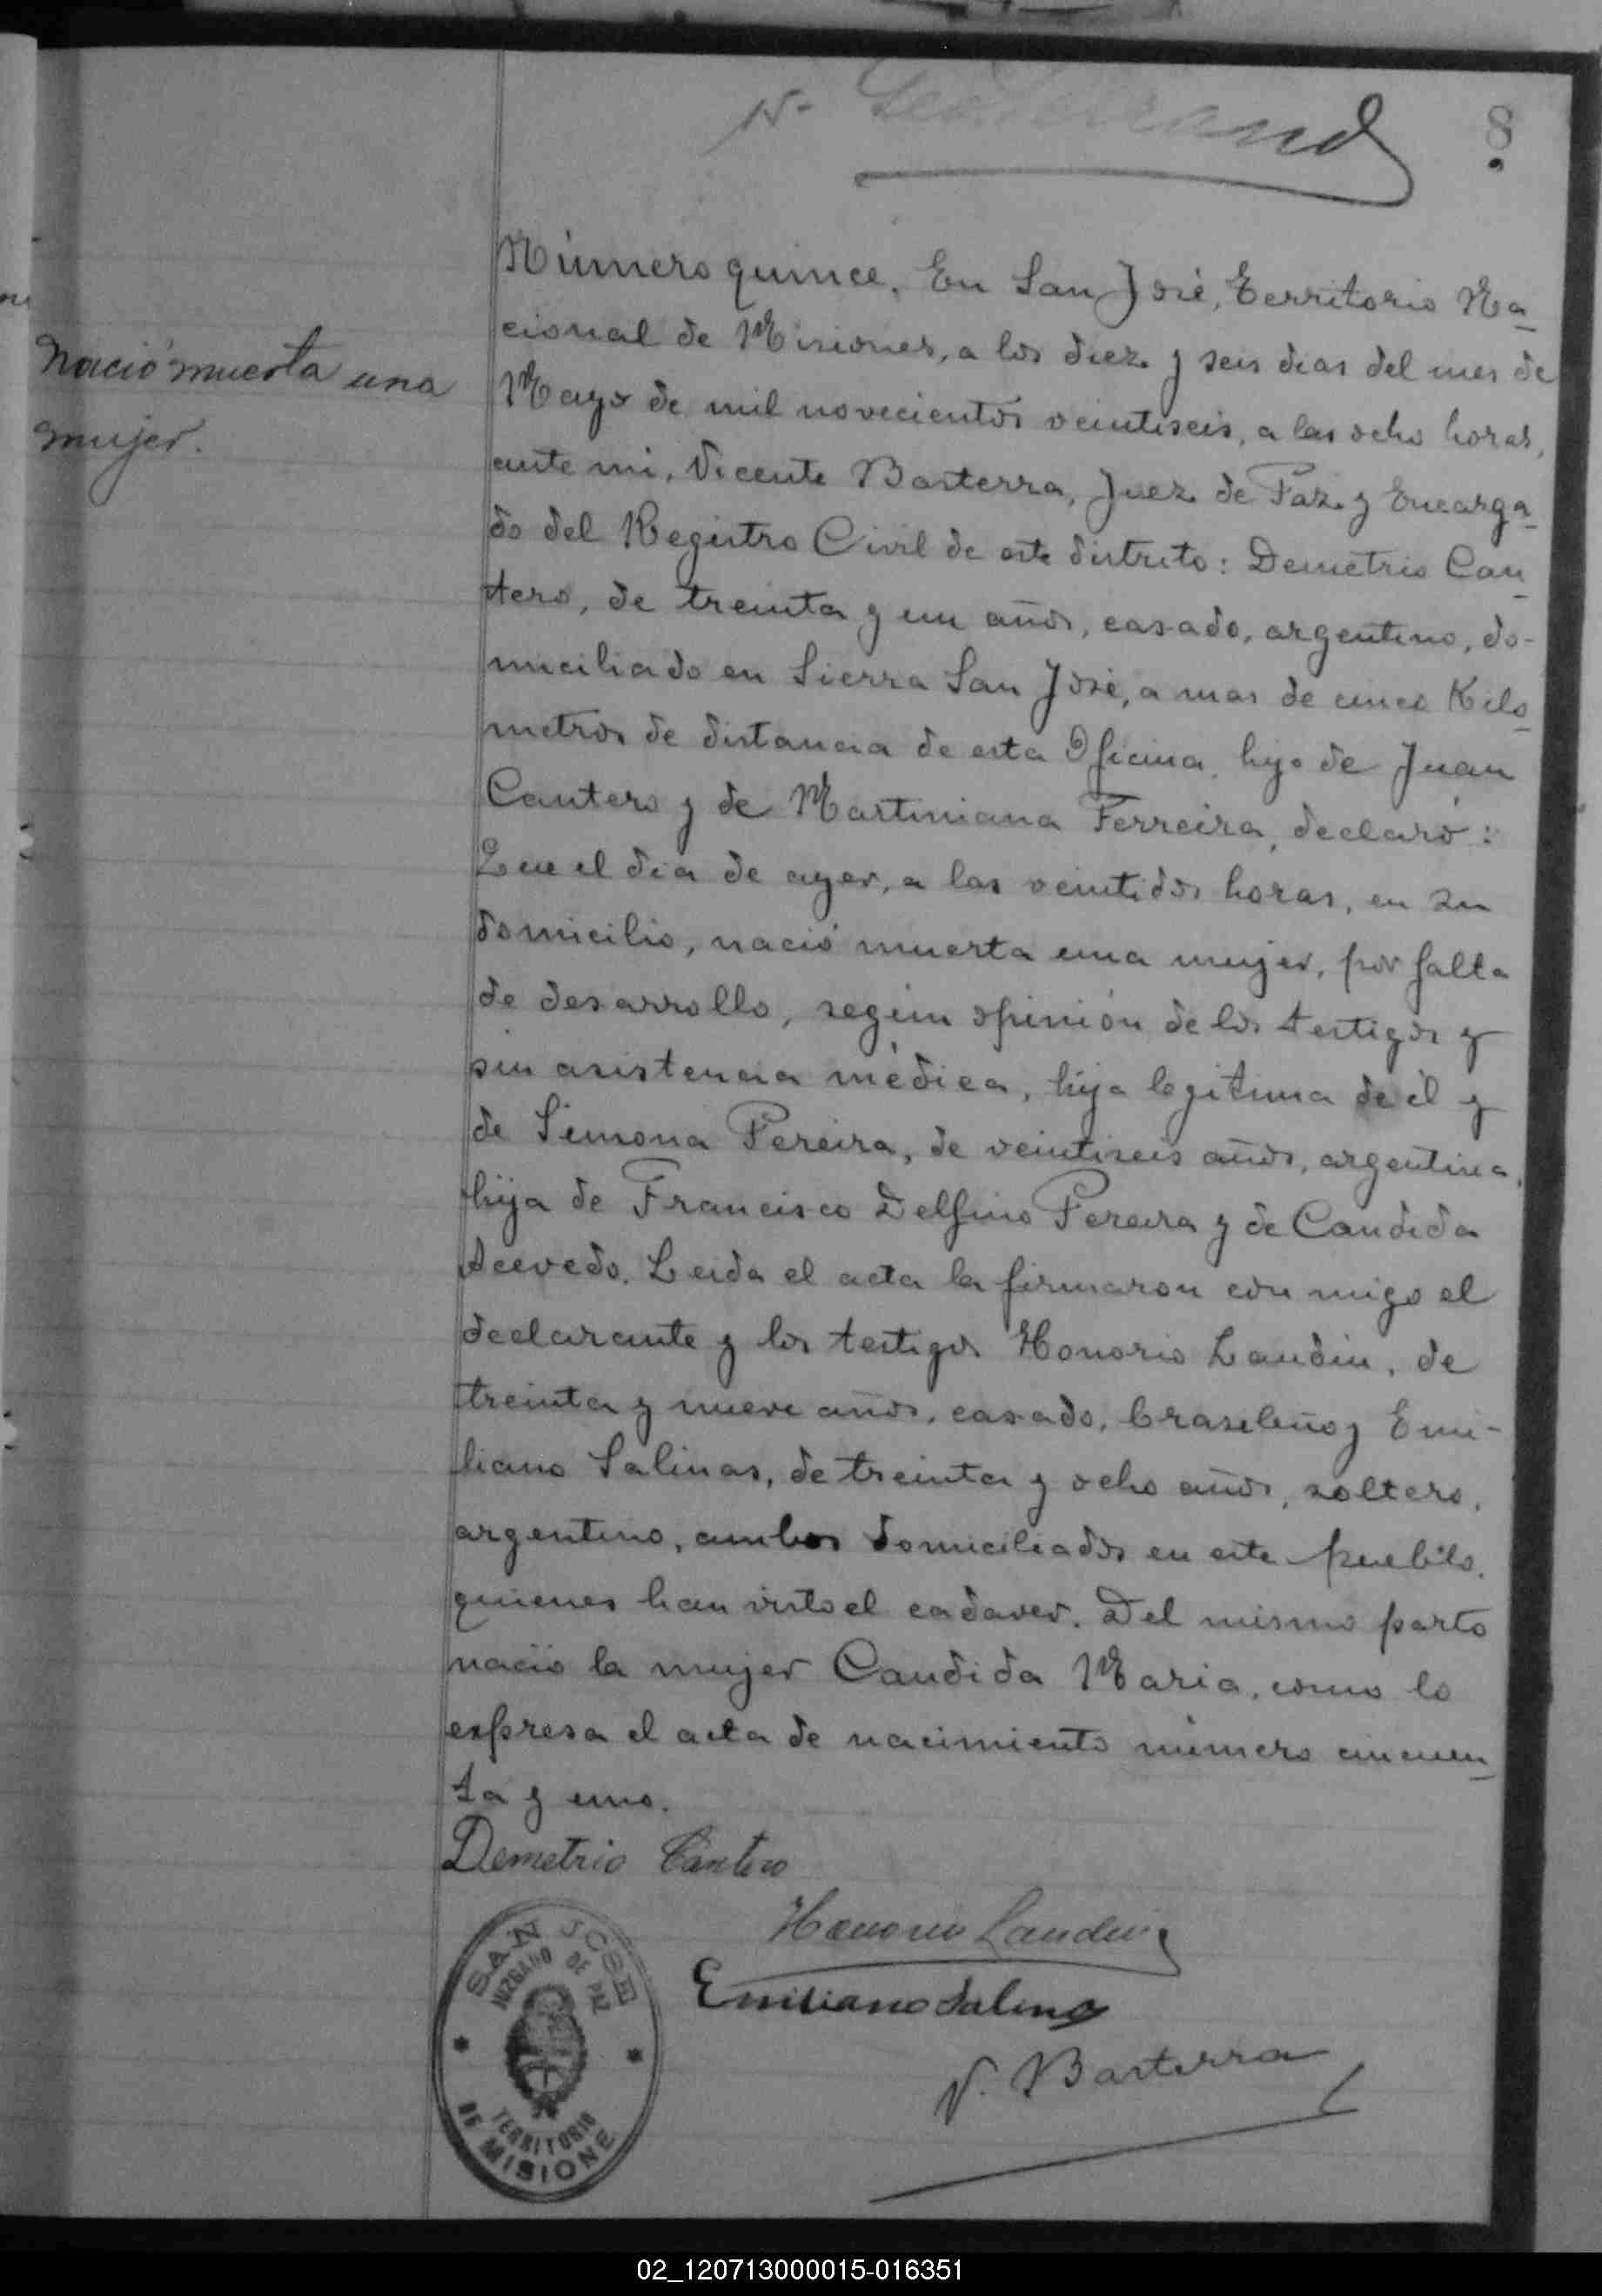 8
Nació muerta una
mujer.
Número quince. En San José, Territorio Na_
cional de Misiones, a los diez y seis dias del mes de
Mayo de mil novecientos veintiseis, a las ocho horas,
ante mi, Vicente Basterra, Juez de Paz y Encarga_
do del Registro Civil de este distrito: Demetrio Can_
tero, de treinta y un años, casado, argentino, do-
miciliado en Sierra San José, a mas de cinco Kilo_
metros de distancia de esta Oficina, hijo de Juan
Cantero y de Martiniana Ferreira, declaró:
Que el dia de ayer, a las veintidos horas, en su
domicilio, nació muerta una mujer, por falta
de desarrollo, según opinión de los testigos y
sin asistencia médica, hija legitima de él y
de Simona Pereira, de veintiseis años, argentina,
hija de Francisco Delfino Pereira y de Candida
Acevedo. Leida el acta la firmaron con migo el
declarante y los testigos Honorio Landin, de
treinta y nueve años, casado, brasileño y Emi-
liano Salinas, de treinta y ocho años, soltero,
argentino, ambos domiciliados en este pueblo,
quienes han visto el cadaver. Del mismo parto
nació la mujer Candida Maria, como lo
expresa el acta de nacimiento número cincuen_
ta y uno.
Demetrio Cantero
Honorio Landin
Emiliano Salinas
V. Basterra
SAN JOSE
JUZGADO DE PAZ
TERRITORIO
DE MISIONE
02_120713000015-016351